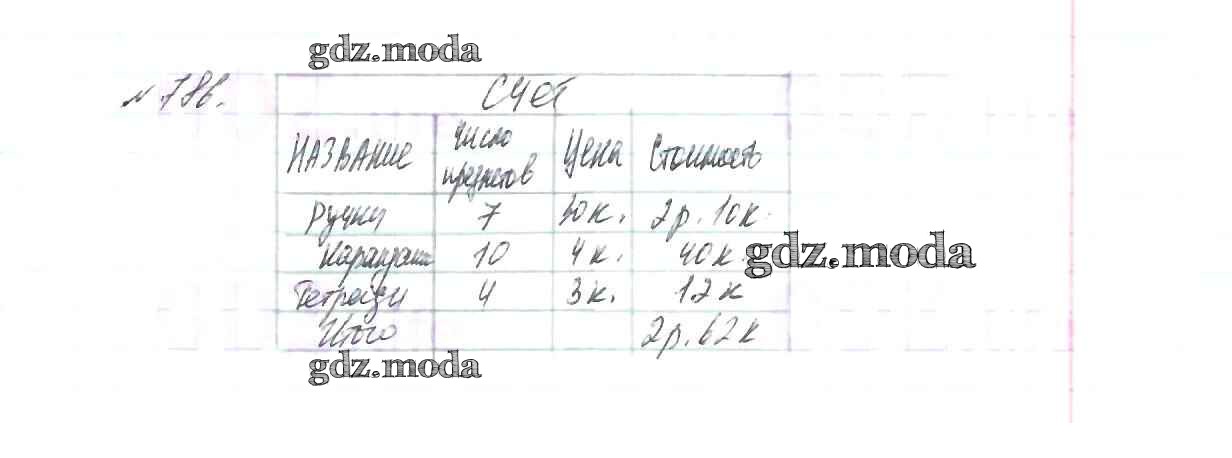 gdz.moda
№ 786.
Счет
Название Число предметов Цена Стоимость
Ручки 7 30к. 2р. 10к.
Карандаши 10 4к. 40к.
gdz.moda
Тетради 4 3к. 12к
Итого 2р. 62к
gdz.moda